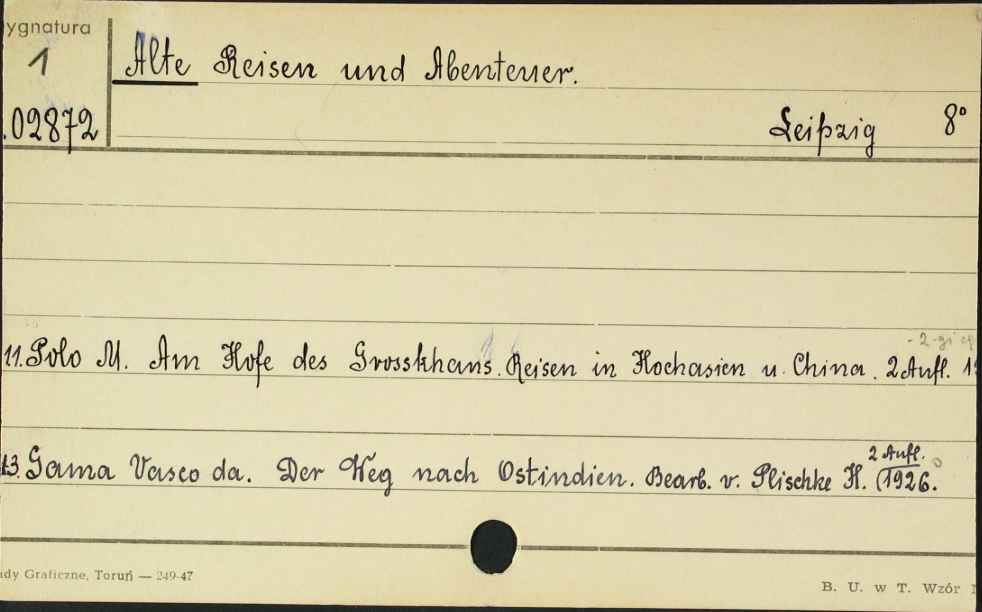 ygnatura
1
Alte Reisen und Abenteuer.
.02872
Leipzig 8°
- 2-gi
11. Polo M. Am Hofe des Grosskhans. Reisen in Hochasien u. China. 2 Aufl. 19
2 Aufl.
13. Gama Vasco da. Der Weg nach Ostindien. Bearb. v. Plischke H. (1926.
ady Graficzne, Toruń — 249-47
B. U. w T. Wzór